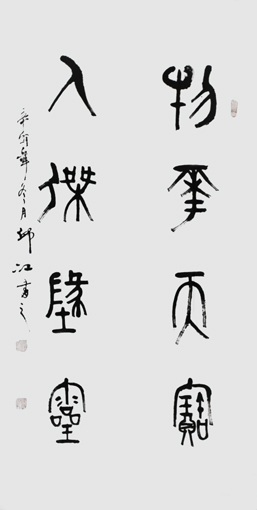 物華天寶
人傑墬靈
辛卯年冬月
江書之